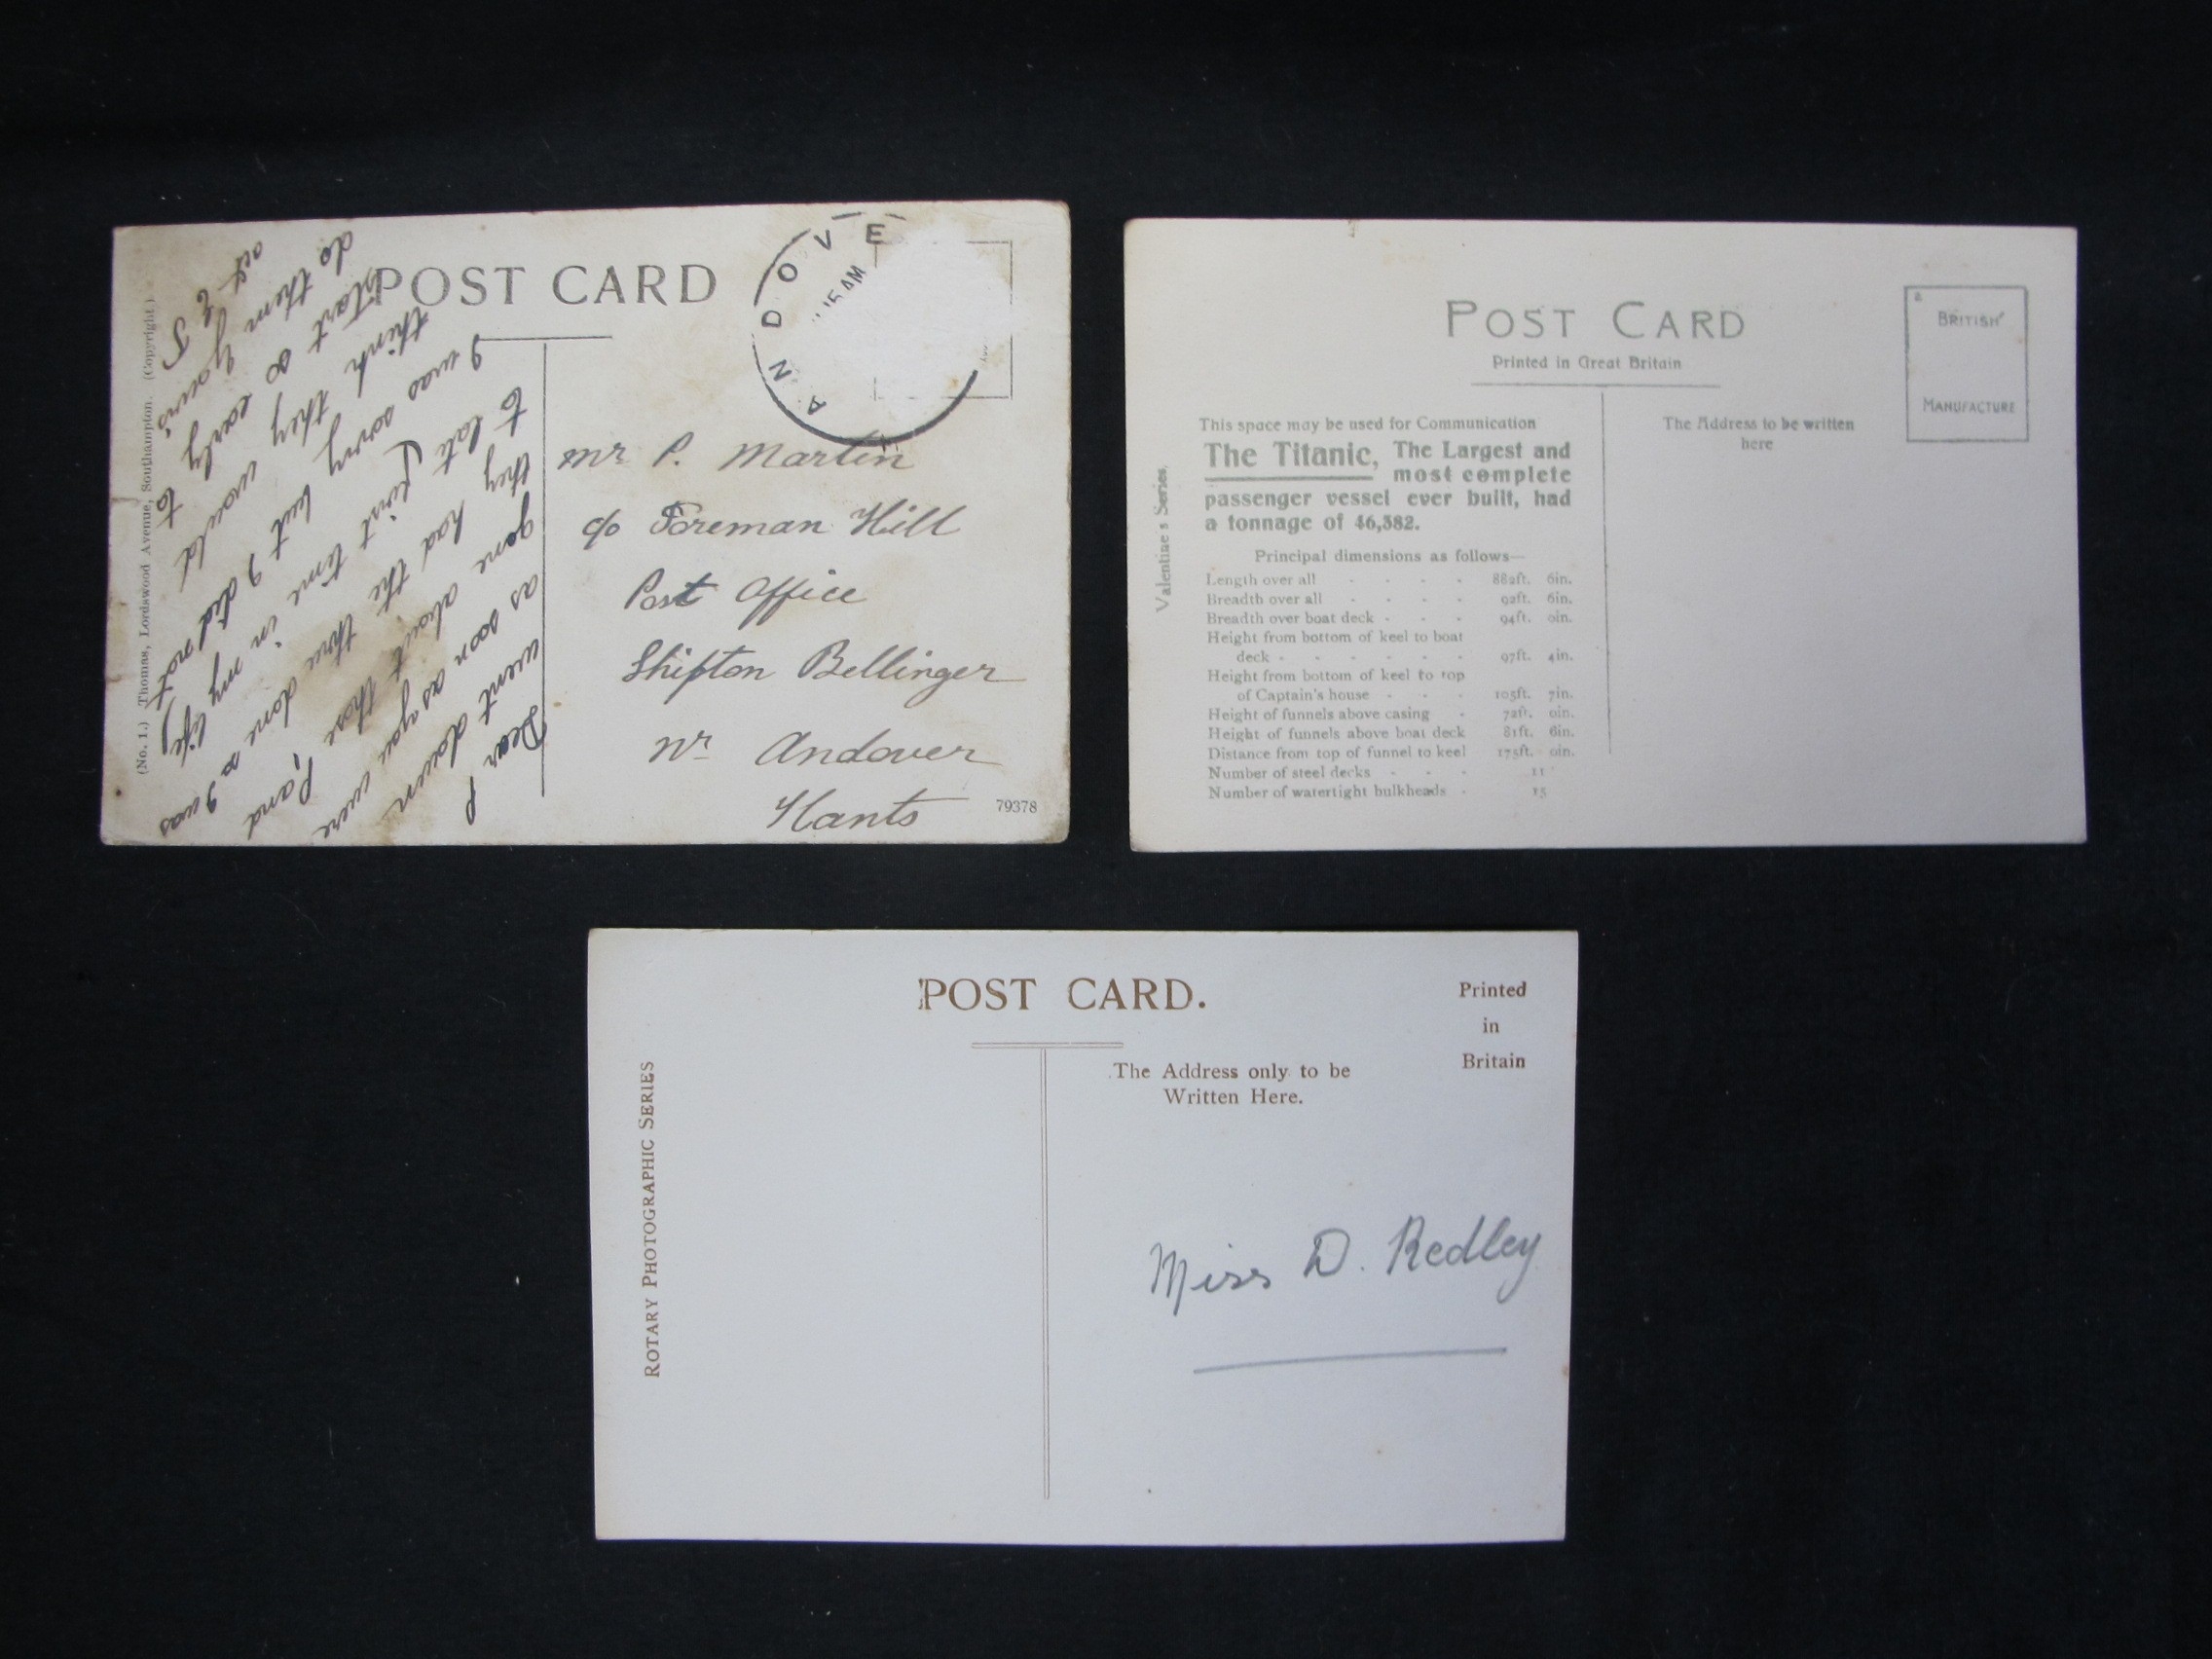 POST CARD
ANDOVE
15 AM
(No. 1.) Thomas, Lordswood Avenue, Southampton. (Copyright.)
Dear P
went down
as soon as you were
gone about those P, and
they had the three done so I was
to late (first time in my life)
I was sorry but I did not
think they would
start so early to
do them Yours
ect
mr P. Martin
c/o Foreman Hill
Post Office
Shipton Bellinger
nr Andover
Hants
79378
POST CARD
Printed in Great Britain
BRITISH
MANUFACTURE
Valentine's Series.
This space may be used for Communication
The Address to be written
here
The Titanic, The Largest and
most complete
passenger vessel ever built, had
a tonnage of 46,382.
Principal dimensions as follows—
Length over all - - - - 882ft. 6in.
Breadth over all - - - - 92ft. 6in.
Breadth over boat deck - - - 94ft. 0in.
Height from bottom of keel to boat
deck - - - - - - 97ft. 4in.
Height from bottom of keel to top
of Captain's house - - - 105ft. 7in.
Height of funnels above casing - 72ft. 0in.
Height of funnels above boat deck 81ft. 6in.
Distance from top of funnel to keel 175ft. 0in.
Number of steel decks - - - 11
Number of watertight bulkheads - 15
POST CARD.
Printed
in
Britain
ROTARY PHOTOGRAPHIC SERIES
The Address only to be
Written Here.
Miss D. Redley